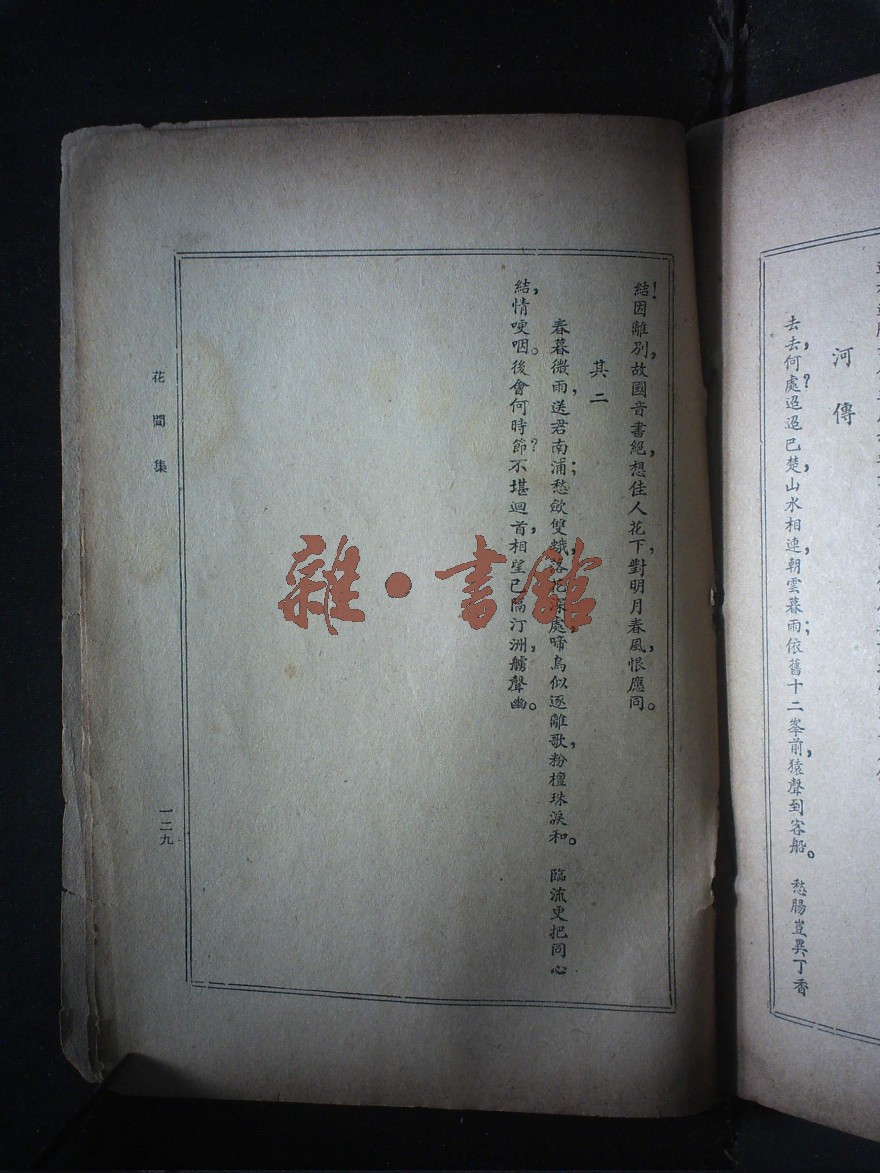 河傳
去去，何處？迢迢巴楚，山水相連，朝雲暮雨；依舊十二峯前，猿聲到客船。　愁腸豈異丁香
結！因離別，故國音書絕，想佳人花下，對明月春風，恨應同。
其二
春暮，微雨，送君南浦；愁斂雙蛾，落花深處，啼鳥似逐離歌，粉檀珠淚和。　臨流更把同心
結，情哽咽。後會何時節？不堪迴首，相望已隔汀洲，艣聲幽。
花間集
一二九
雜·書館